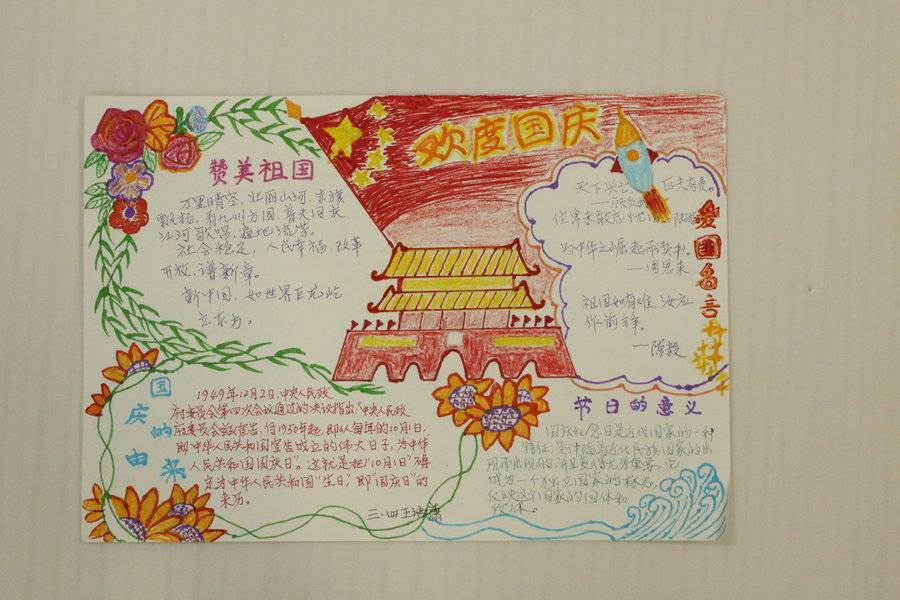 欢度国庆
赞美祖国
万里晴空，壮丽山河，
飘扬。看九州方圆，普天同庆
江河歌唱，遍地流芳。
社会稳定，人民幸福，改革
开放，谱新章。
新中国，如世界巨龙屹
立东方。
爱国名言
天下兴亡，匹夫有责。
位卑未敢忘忧国
为中华之崛起而读书。
—周恩来
祖国如有难，汝应
作前锋。
—陈毅
国庆的由来
1949年12月2日，中央人民政
府委员会第四次会议通过的决议指出：“中央人民政
府委员会宣告：自1950年起，即以每年的10月1日，
即中华人民共和国宣告成立的伟大日子，为中华
人民共和国国庆日”。这就是把“10月1日”确
定为中华人民共和国“生日”，即“国庆日”的
来历。
节日的意义
国庆纪念日是近代国家的一种
特征，是伴随着近代民族国家的出
现而出现的，并且变得尤为重要。它
成为一个独立国家的标志，
反映这个国家的国体和
政体。
三.四 王